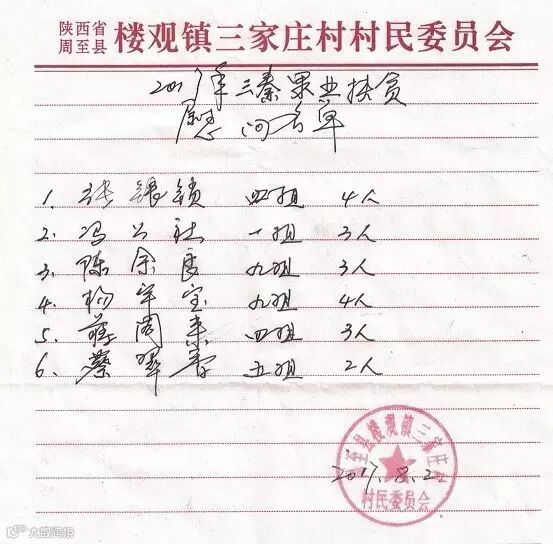 陕西省
周至县 楼观镇三家庄村村民委员会
2017年三秦果业扶贫
慰问名单
1. 张银锁 四组 4人
2. 冯公社 一组 3人
3. 陈余良 九组 3人
4. 杨军宝 九组 4人
5. 蒋周来 四组 3人
6. 蔡翠香 五组 2人
周至县楼观镇三家庄村
2017.8.2
村民委员会
大数跨境